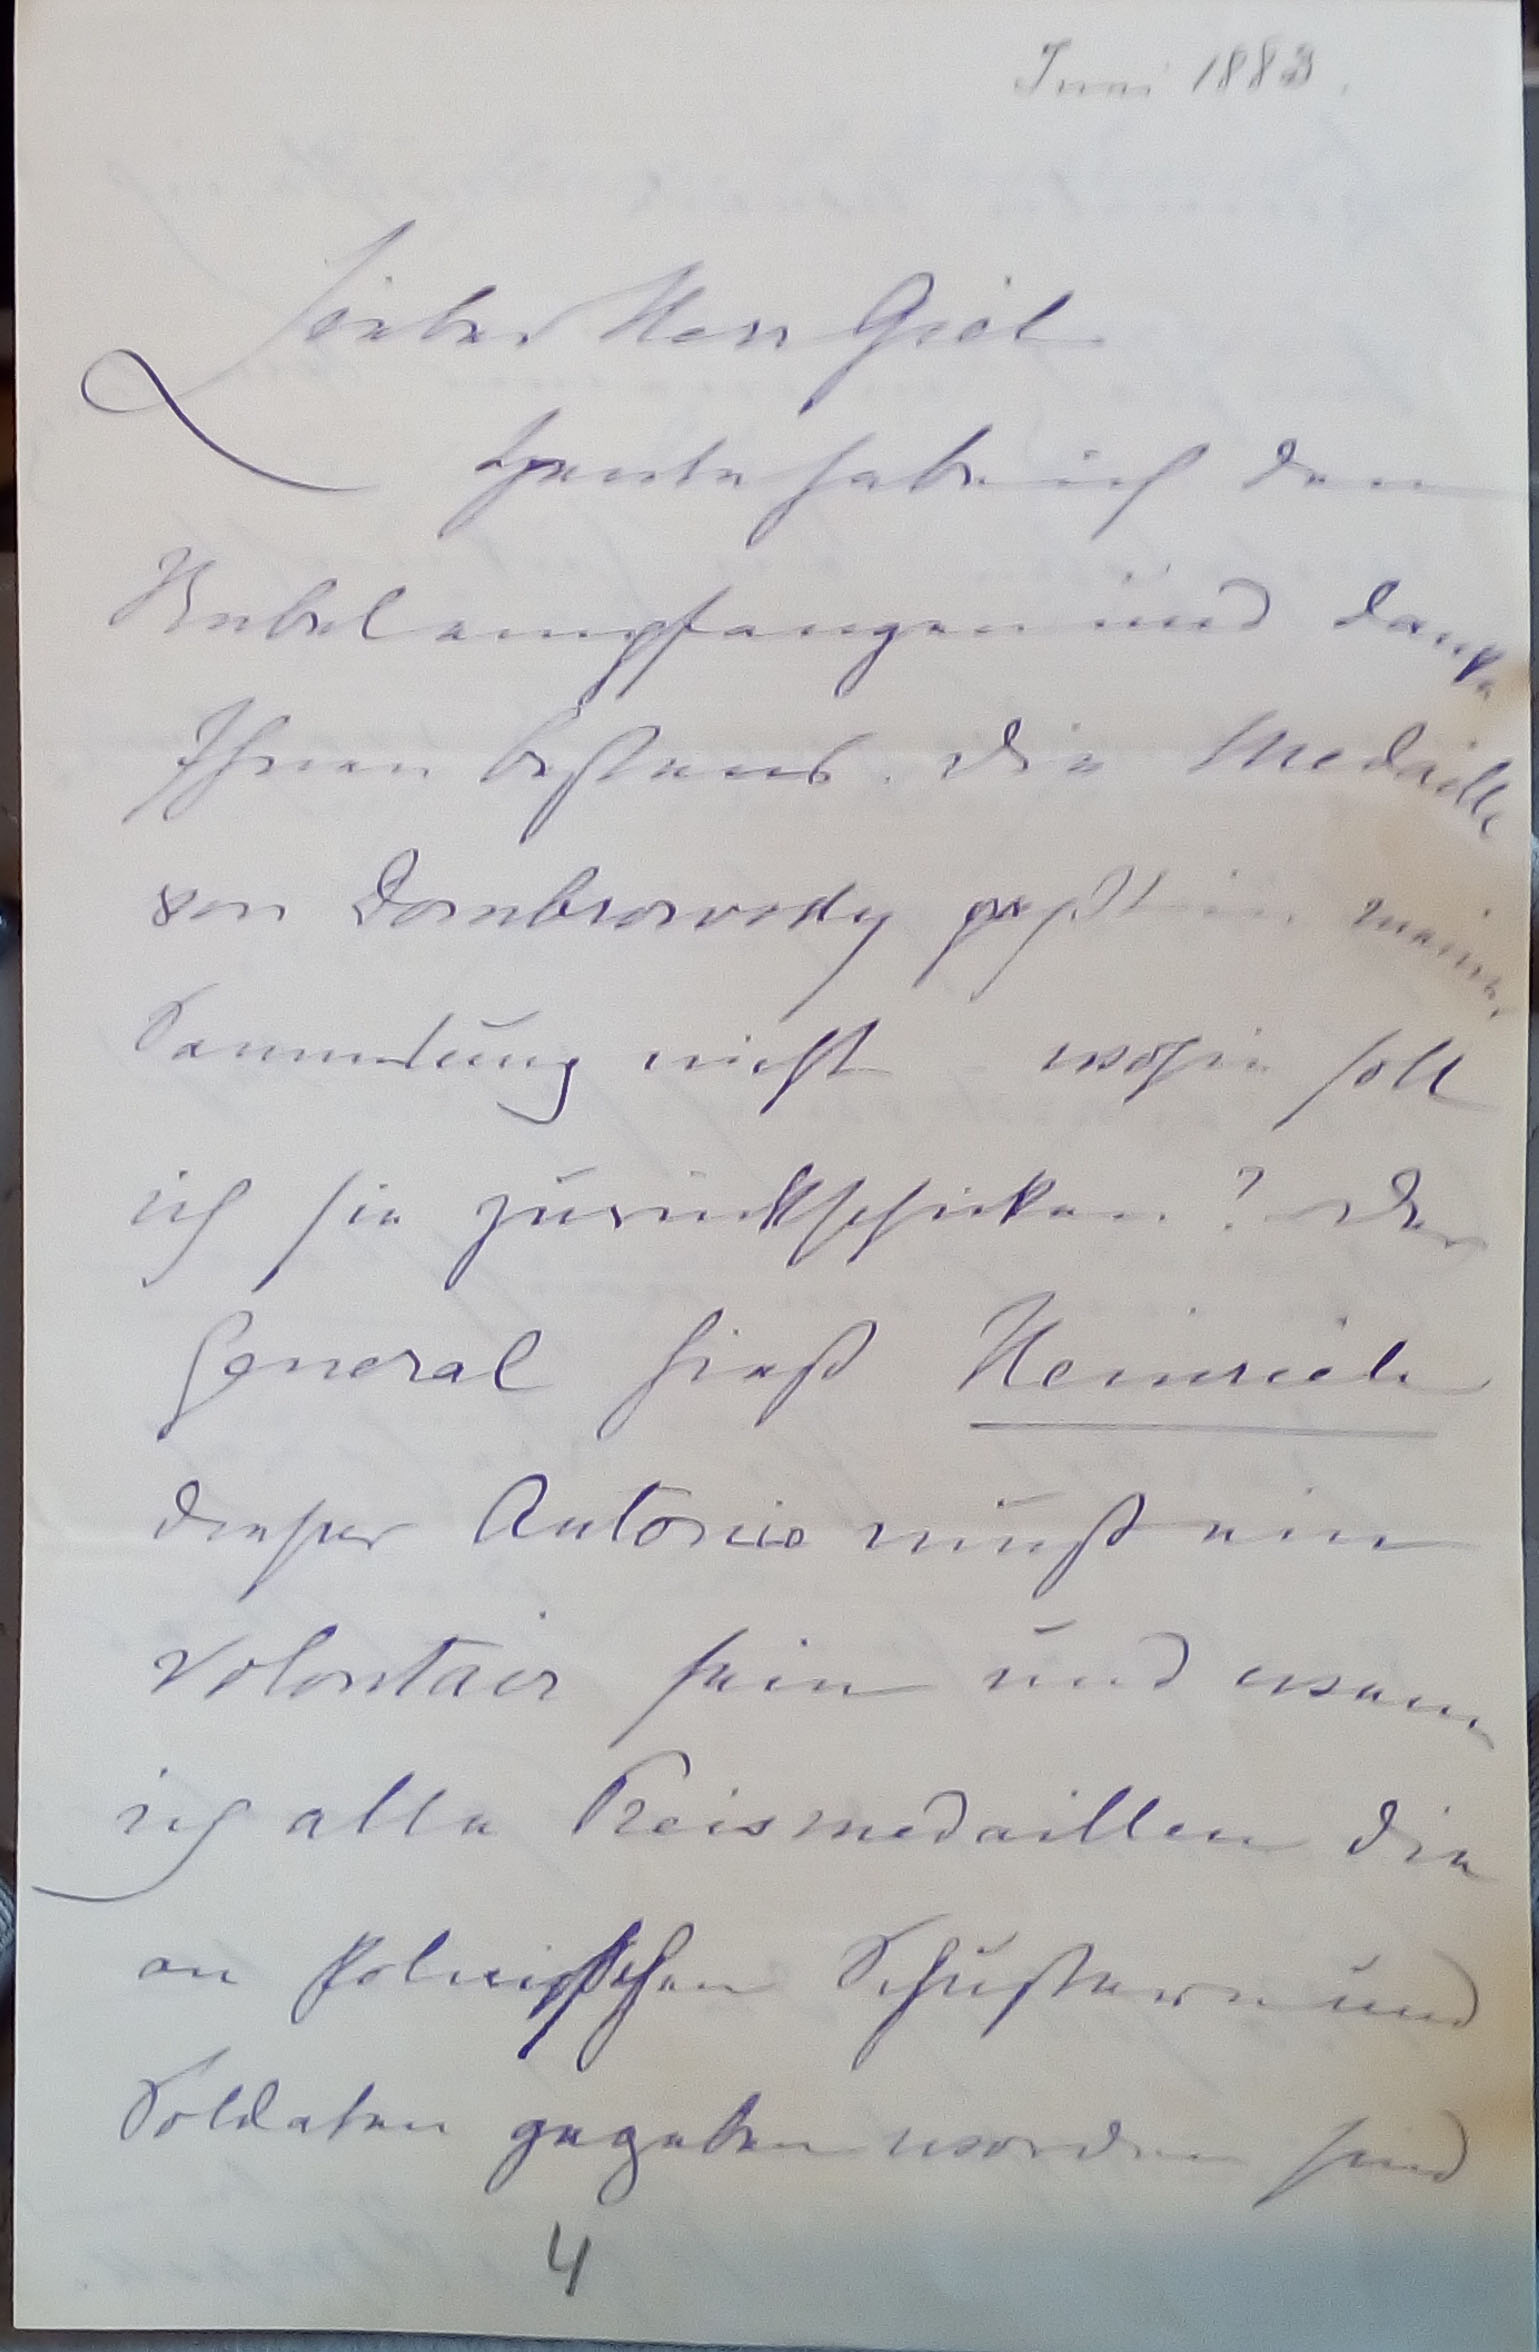 Juni 1883.
Lieber Herr Giel
Heute habe ich den
Rubel empfangen und danke
Ihnen bestens. Die Medaille
von Dombrowsky paßt in meine
Sammlung nicht – wohin soll
ich sie zurückschicken? Der
General hieß Heinrich
dieser Antonio muß ein
Volontair sein und wenn
ich alle Preismedaillen die
an Polnischen Schustern und
Soldaten gegeben worden sind
4